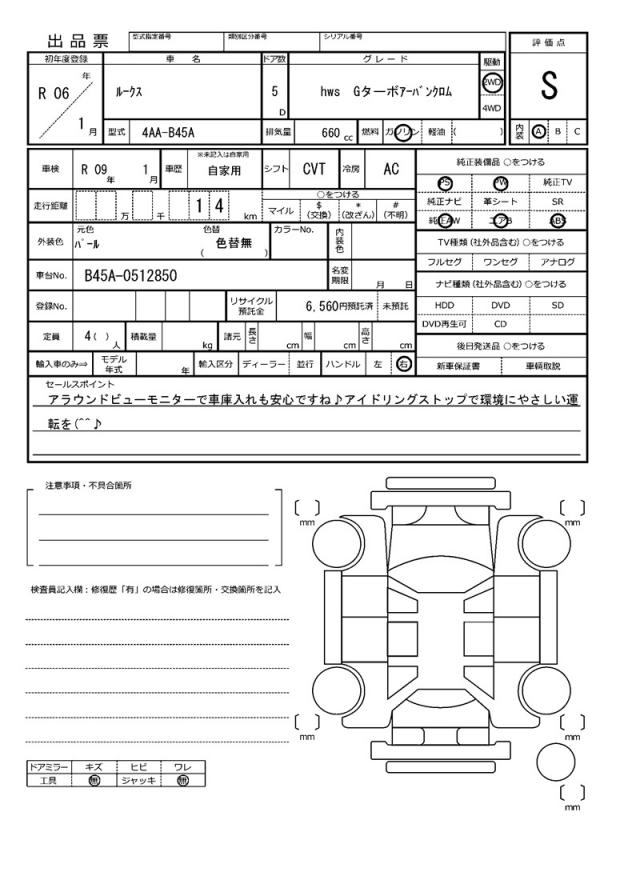 出品票
型式指定番号 類別区分番号 シリアル番号
評価点
S
内装 A B C
初年度登録 車名 ドア数 グレード 駆動
R 06 年 1 月
ルークス
5 D
hws Gターボアーバンクロム
2WD
4WD
型式 4AA-B45A 排気量 660 cc 燃料 ガソリン 軽油 ( )
車検 R 09 年 1 月 車歴 ※未記入は自家用 自家用 シフト CVT 冷房 AC
走行距離 万 千 1 4 km
○をつける
マイル $(交換) *(改ざん) #(不明)
外装色 元色 パール 色替 色替無 ( ) カラーNo. 内装色
車台No. B45A-0512850 名変期限 月 日
登録No. リサイクル預託金 6,560円預託済 未預託
定員 4( ) 人 積載量 kg 諸元 長さ cm 幅 cm 高さ cm
輸入車のみ⇒ モデル年式 年 輸入区分 ディーラー 並行 ハンドル 左 右
純正装備品 ○をつける
PS PW 純正TV
純正ナビ 革シート SR
純正AW エアB ABS
TV種類(社外品含む) ○をつける
フルセグ ワンセグ アナログ
ナビ種類(社外品含む) ○をつける
HDD DVD SD
DVD再生可 CD
後日発送品 ○をつける
新車保証書 車輌取説
セールスポイント
アラウンドビューモニターで車庫入れも安心ですね♪アイドリングストップで環境にやさしい運
転を(^^♪
注意事項・不具合箇所
検査員記入欄：修復歴「有」の場合は修復箇所・交換箇所を記入
ドアミラー キズ ヒビ ワレ
工具 無 ジャッキ 無
[ ] mm
[ ] mm
[ ] mm
[ ] mm
[ ] mm